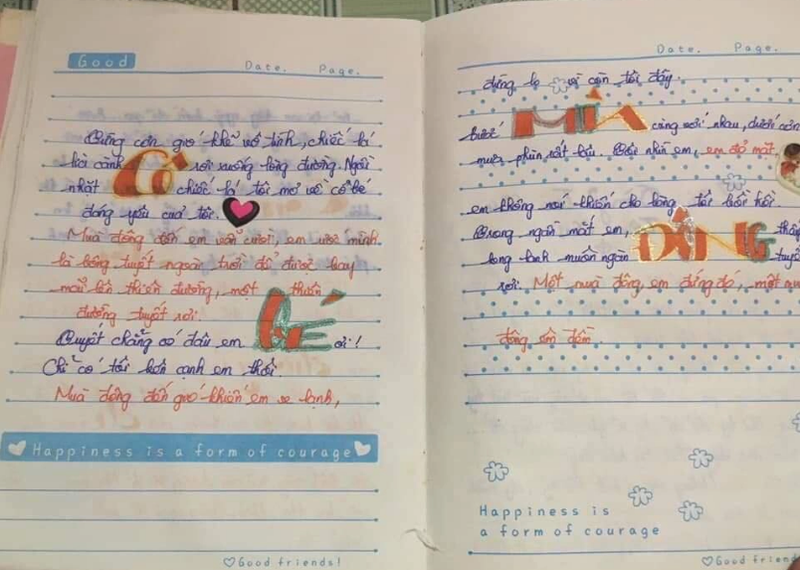 Good
Date. Page.
Từng cơn gió khẽ vô tình, chiếc lá
lìa cành CÔ rơi xuống lòng đường. Ngồi
nhặt chiếc lá tôi mơ về cô bé
đáng yêu của tôi.
Mùa đông đến em vẫn cười, em ước mình
là bông tuyết ngoài trời để được bay
mãi lên thiên đường, một thiên
đường tuyết rơi.
Tuyết chẳng có đâu em BÉ ơi!
Chỉ có tôi bên cạnh em thôi.
Mùa đông đến gió khiến em se lạnh,
Happiness is a form of courage
Good friends!
Date. Page.
đừng lo vì còn tôi đây.
bước MÙA cùng với nhau, dưới cơn
mưa phùn rất lâu. Tôi nhìn em, em đỏ mặt,
em không nói khiến cho lòng tôi bồi hồi.
Trong ngàn mắt em, ĐÔNG
long lanh muôn ngàn
rơi. Một mùa đông, em đứng đó, một
đông êm đềm.
Happiness is
a form of courage
Good friends